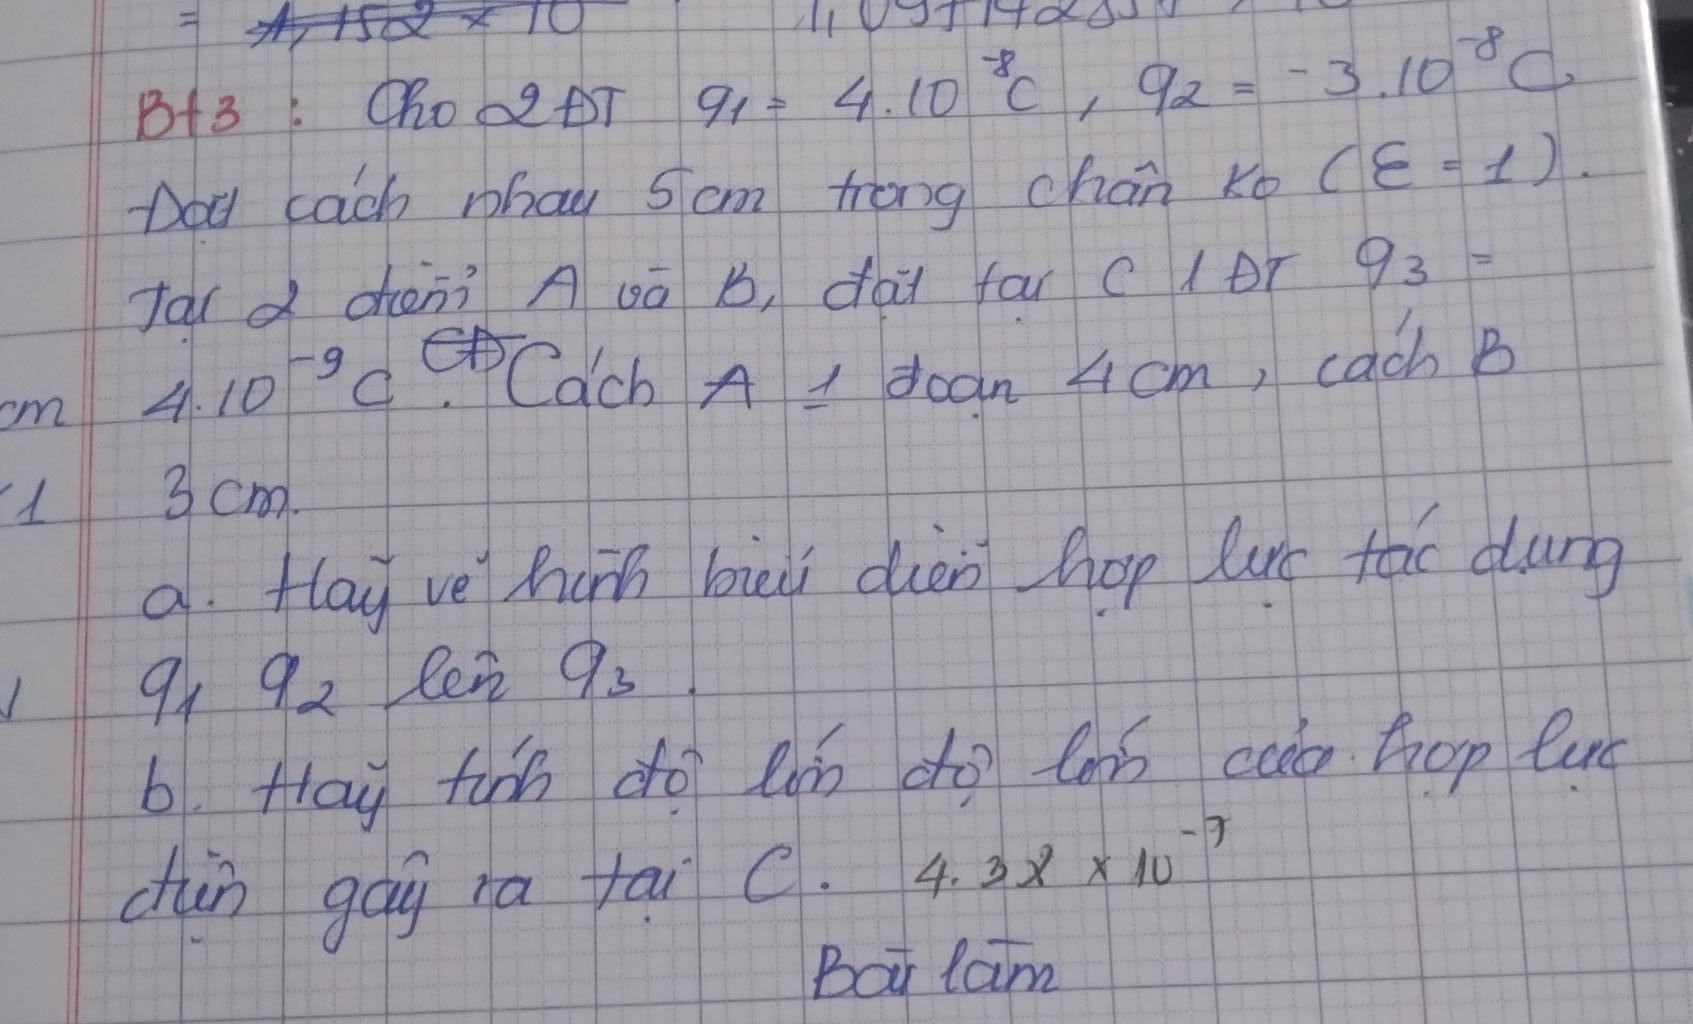 = 1,152 × 10
Bt3 : Cho 2 ĐT q1 = 4.10⁻⁸C, q2 = -3.10⁻⁸C.
Đặt cách nhau 5cm trong chân ko (ε = 1).
Tại 2 điểm A và B, đặt tại C 1 ĐT q3 =
cm 4.10⁻⁹C. Cách A 1 đoạn 4cm, cách B
1 3cm.
a. Hãy vẽ hình biểu diễn hợp lực tác dụng
q1 q2 lên q3.
b. Hãy tính độ lớn độ lớn của hợp lực
điện gây ra tại C. 4.38 × 10⁻⁷
Bài làm